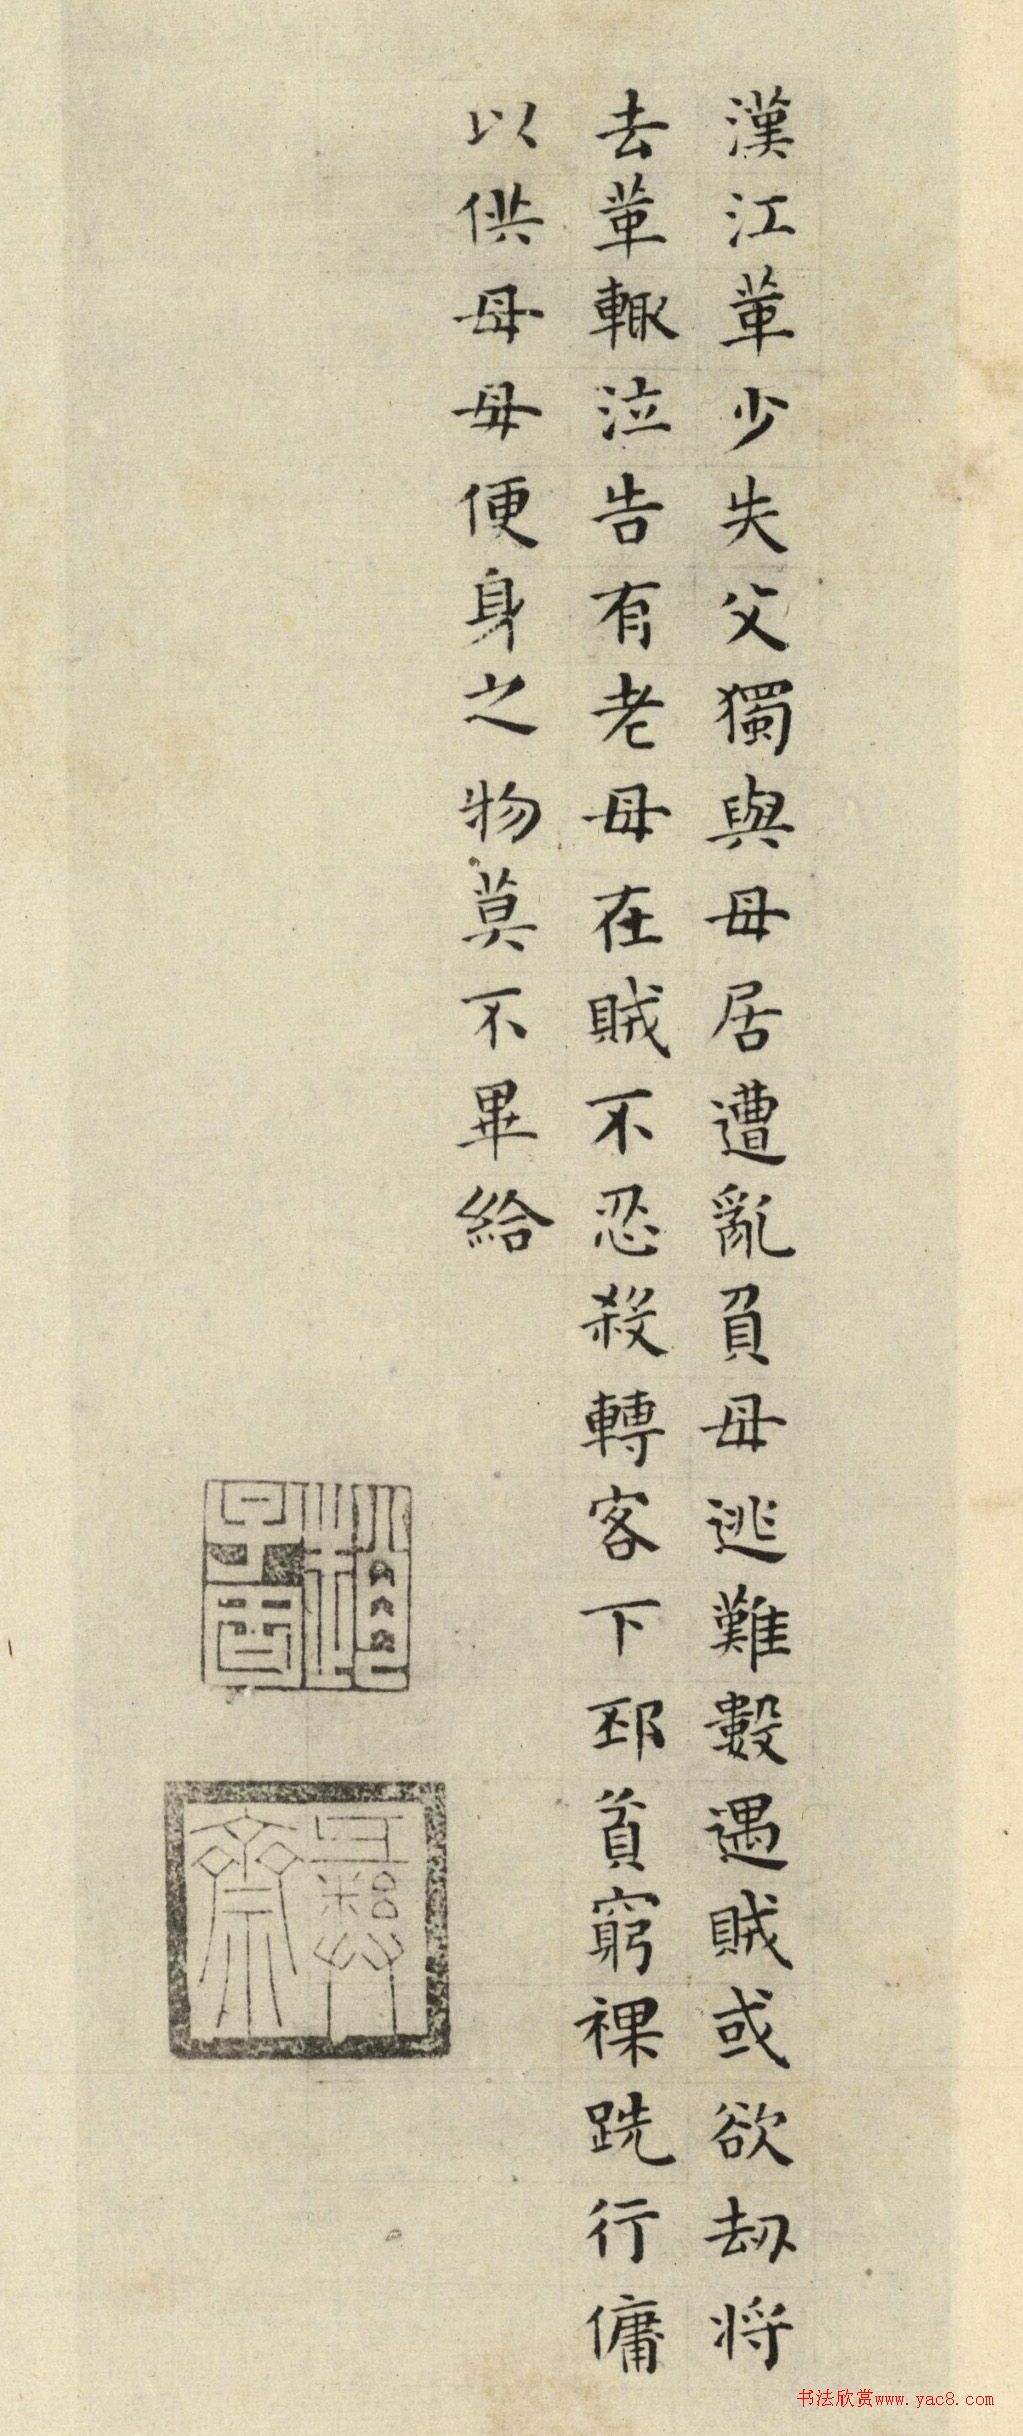 漢江革少失父獨與母居遭亂負母逃難數遇賊或欲劫將
去革輒泣告有老母在賊不忍殺轉客下邳貧窮裸跣行傭
以供母母便身之物莫不畢給
彝齋
书法欣赏www.yac8.com